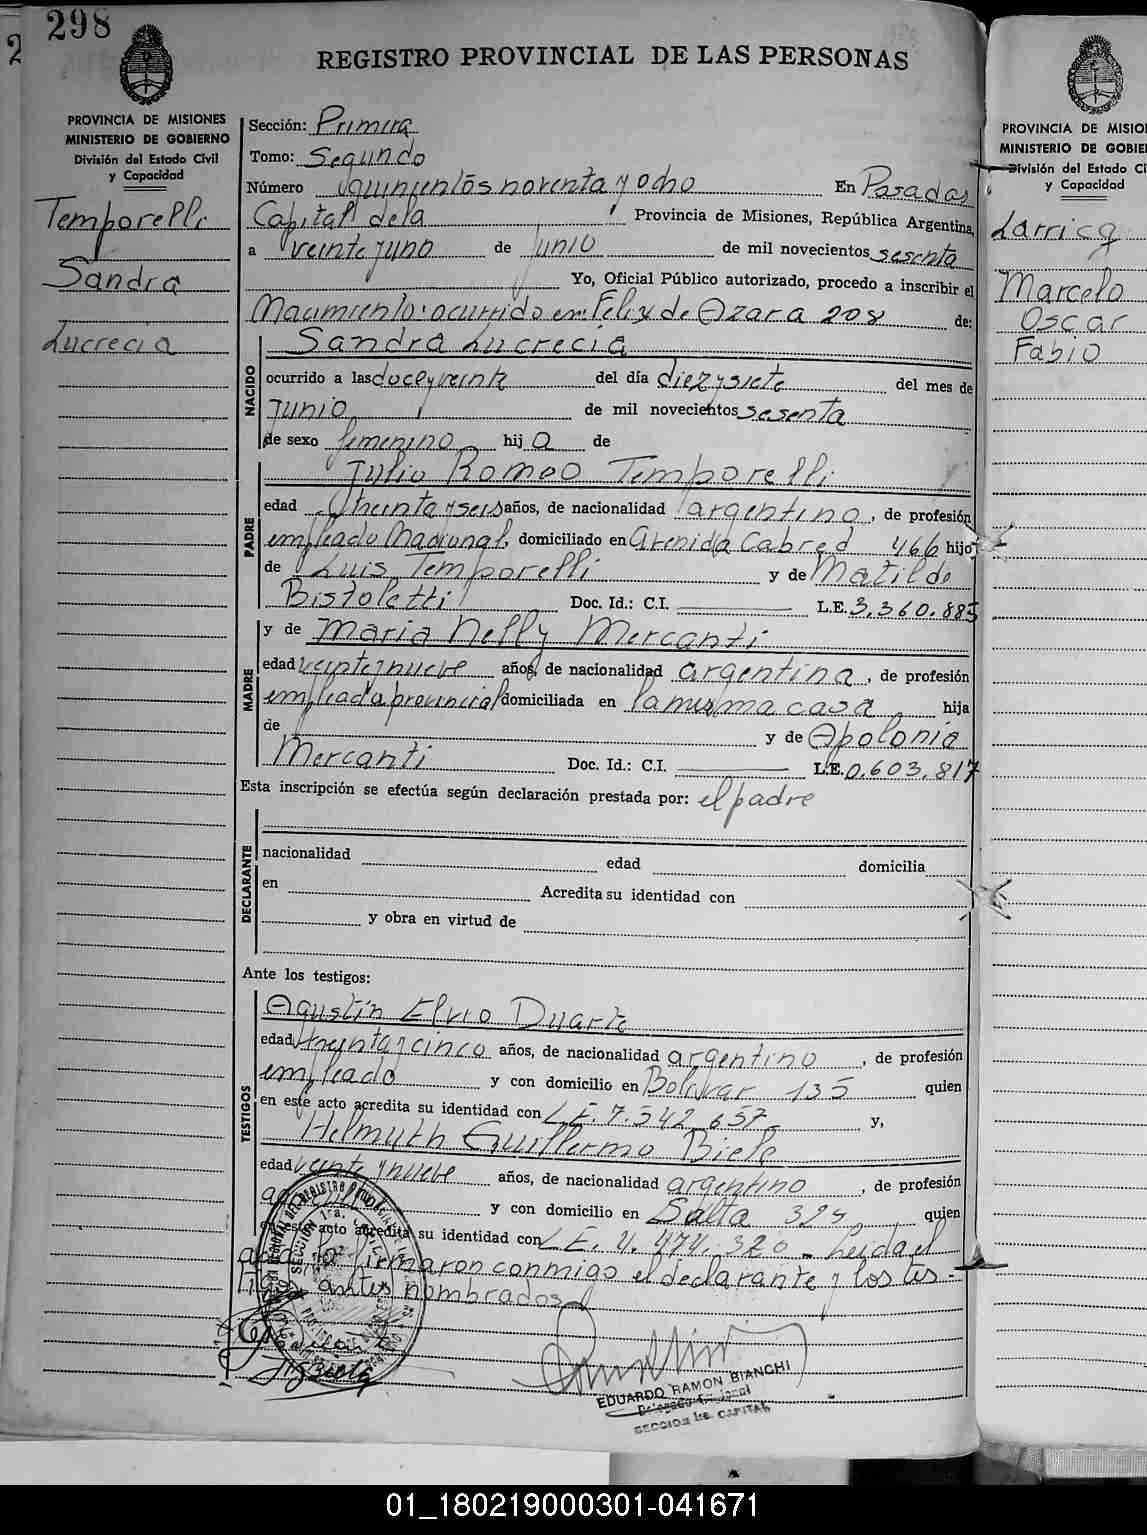 298
REGISTRO PROVINCIAL DE LAS PERSONAS
PROVINCIA DE MISIONES
MINISTERIO DE GOBIERNO
División del Estado Civil
y Capacidad
Temporelli
Sandra
Lucrecia
Sección: Primera
Tomo: Segundo
Número quinientos noventa y ocho En Posadas
Capital de la Provincia de Misiones, República Argentina,
a veinte y uno de junio de mil novecientos sesenta
Yo, Oficial Público autorizado, procedo a inscribir el
Nacimiento: ocurrido en: Felix de Azara 208 de:
NACIDO
Sandra Lucrecia
ocurrido a las doce y veinte del día diez y siete del mes de
junio de mil novecientos sesenta
de sexo femenino hij a de
PADRE
Julio Romeo Temporelli
edad treinta y seis años, de nacionalidad argentino, de profesión
empleado Nacional, domiciliado en Avenida Cabred 466 hijo
de Luis Temporelli y de Matilde
Bistoletti Doc. Id.: C.I. L.E. 3.360.885
MADRE
y de Maria Nelly Mercanti
edad veinte y nueve años, de nacionalidad argentina, de profesión
empleada provincial domiciliada en la misma casa hija
de y de Apolonia
Mercanti Doc. Id.: C.I. L.E. 0.603.817
Esta inscripción se efectúa según declaración prestada por: el padre
DECLARANTE
nacionalidad edad domicilia
en Acredita su identidad con
y obra en virtud de
Ante los testigos:
TESTIGOS
Agustín Elvio Duarte
edad treinta y cinco años, de nacionalidad argentino, de profesión
empleado y con domicilio en Bolivar 135 quien
en este acto acredita su identidad con L.E. 7.542.657 y,
Helmuth Guillermo Biele
edad veinte y nueve años, de nacionalidad argentino, de profesión
y con domicilio en Salta 329 quien
en este acto acredita su identidad con L.E. 474.320 - Leida el
acta la firmaron conmigo el declarante y los tes-
tigos antes nombrados
EDUARDO RAMON BIANCHI
SECCION 1ra. CAPITAL
PROVINCIA DE MISIO
MINISTERIO DE GOBIE
División del Estado Ci
y Capacidad
Larricq
Marcelo
Oscar
Fabio
01_180219000301-041671